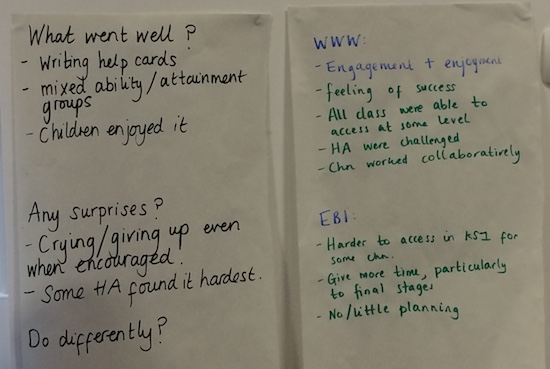 What went well ?
- Writing help cards
- mixed ability/attainment
groups
- Children enjoyed it
Any surprises ?
- Crying/giving up even
when encouraged.
- Some HA found it hardest.
Do differently?
WWW:
- Engagement + enjoyment
- feeling of success
- All class were able to
access at some level
- HA were challenged
- Chn worked collaboratively
EBI:
- Harder to access in KS1 for
some chn.
- Give more time, particularly
to final stages
- No/little planning